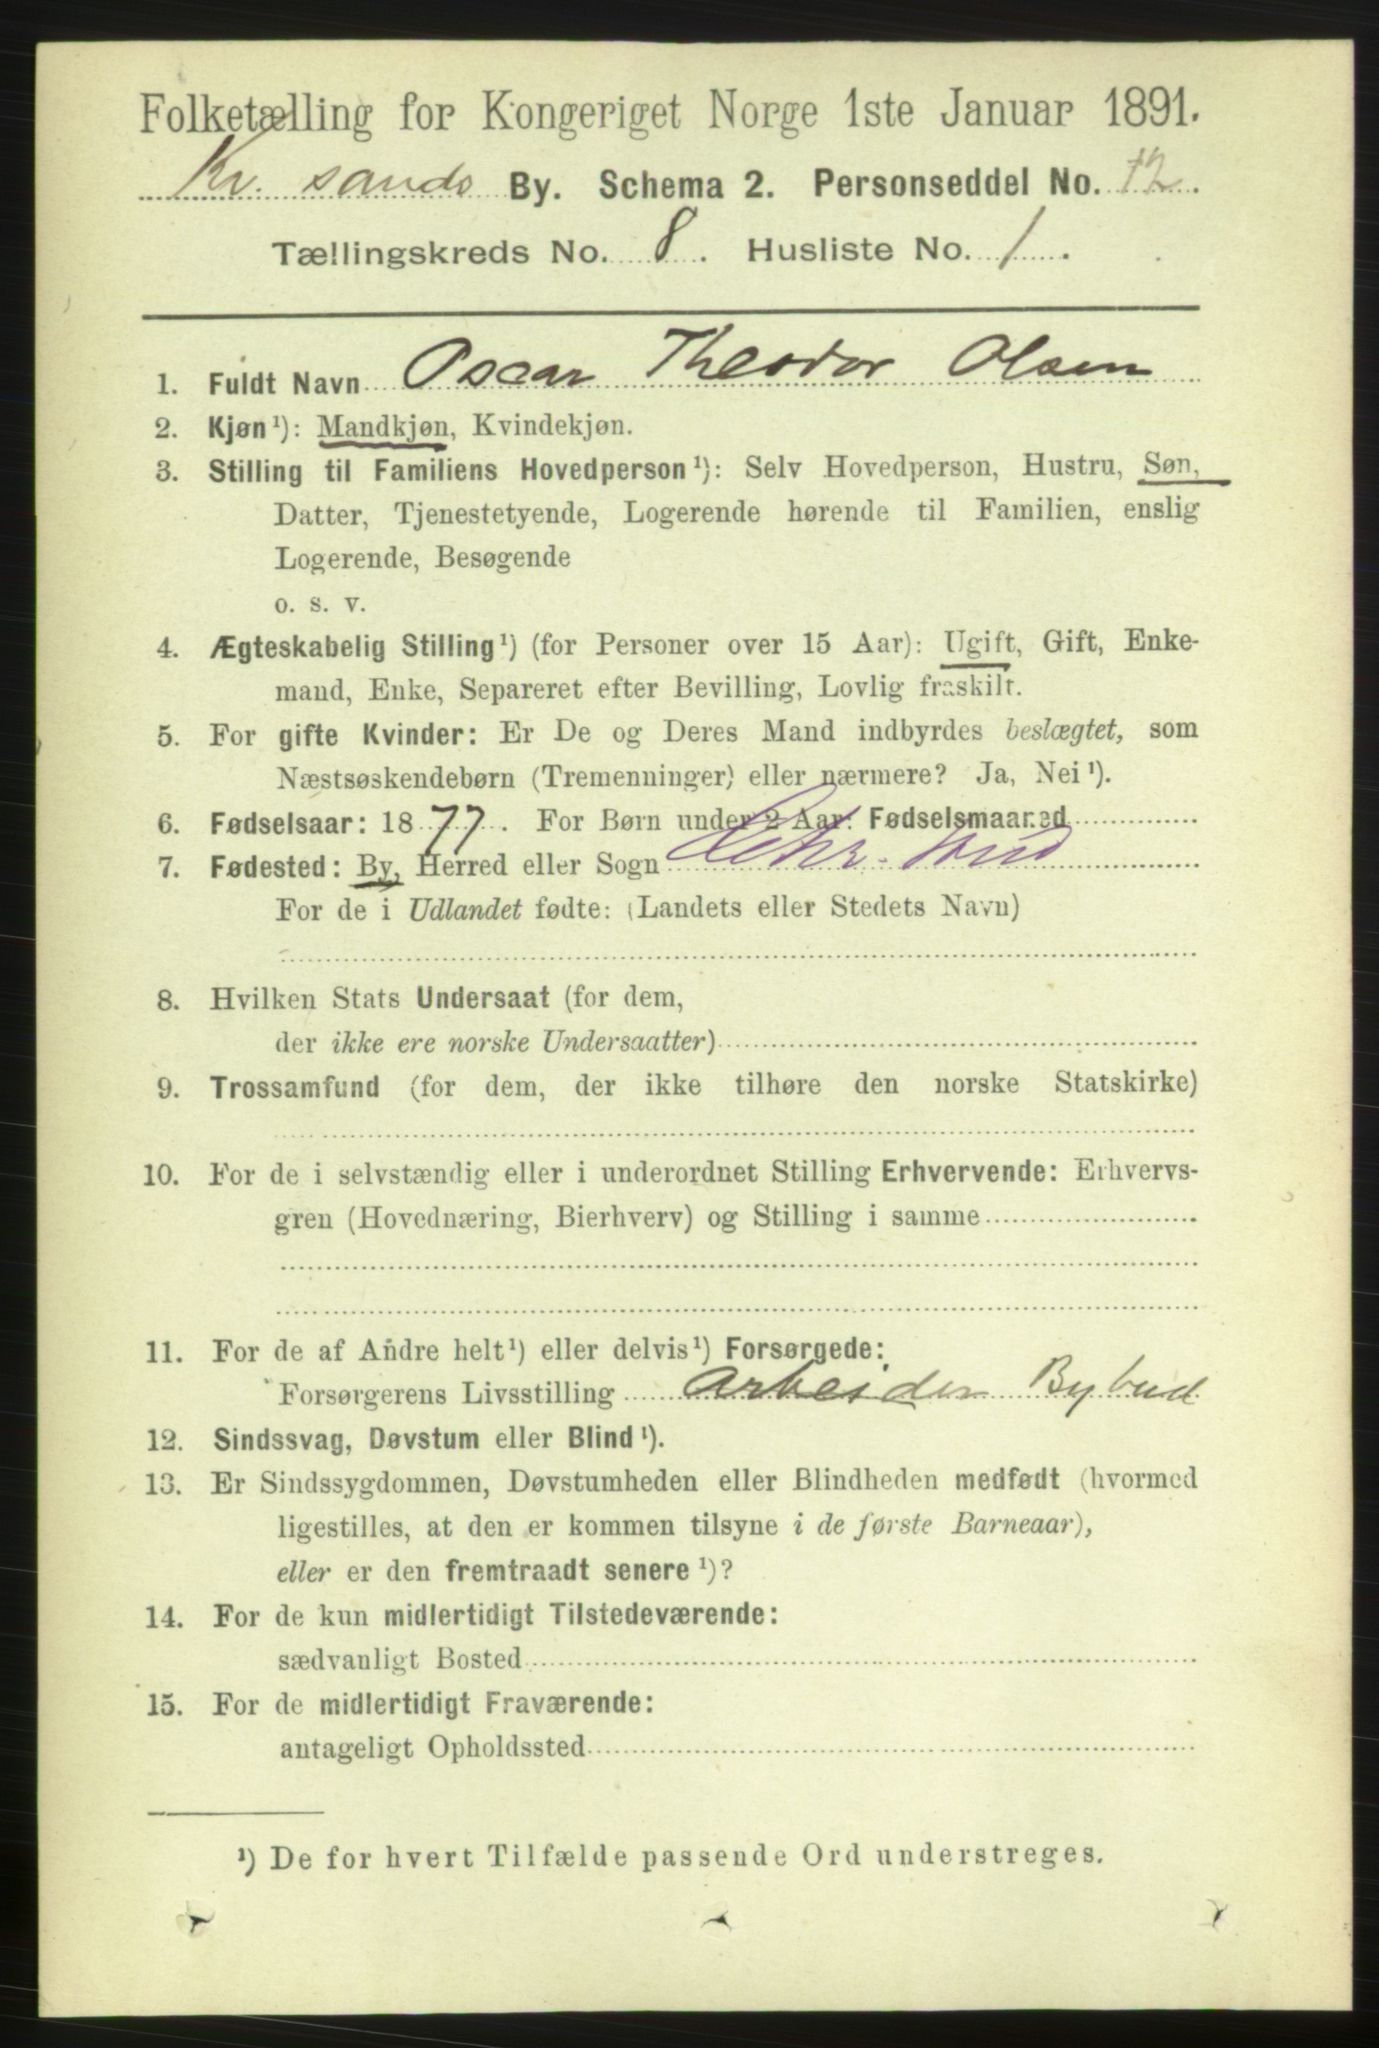 Folketælling for Kongeriget Norge 1ste Januar 1891.
Kr. sands By. Schema 2. Personseddel No. 12.
Tællingskreds No. 8. Husliste No. 1.
1. Fuldt Navn Oscar Theodor Olsen
2. Kjøn¹): Mandkjøn, Kvindekjøn.
3. Stilling til Familiens Hovedperson¹): Selv Hovedperson, Hustru, Søn,
Datter, Tjenestetyende, Logerende hørende til Familien, enslig
Logerende, Besøgende
o. s. v.
4. Ægteskabelig Stilling¹) (for Personer over 15 Aar): Ugift, Gift, Enke-
mand, Enke, Separeret efter Bevilling, Lovlig fraskilt.
5. For gifte Kvinder: Er De og Deres Mand indbyrdes beslægtet, som
Næstsøskendebørn (Tremenninger) eller nærmere? Ja, Nei¹).
6. Fødselsaar: 1877. For Børn under 2 Aar: Fødselsmaaned
7. Fødested: By, Herred eller Sogn
For de i Udlandet fødte: (Landets eller Stedets Navn)
8. Hvilken Stats Undersaat (for dem,
der ikke ere norske Undersaatter)
9. Trossamfund (for dem, der ikke tilhøre den norske Statskirke)
10. For de i selvstændig eller i underordnet Stilling Erhvervende: Erhvervs-
gren (Hovednæring, Bierhverv) og Stilling i samme
11. For de af Andre helt¹) eller delvis¹) Forsørgede:
Forsørgerens Livsstilling Arbeider Bybud
12. Sindssvag, Døvstum eller Blind¹).
13. Er Sindssygdommen, Døvstumheden eller Blindheden medfødt (hvormed
ligestilles, at den er kommen tilsyne i de første Barneaar),
eller er den fremtraadt senere¹)?
14. For de kun midlertidigt Tilstedeværende:
sædvanligt Bosted
15. For de midlertidigt Fraværende:
antageligt Opholdssted
¹) De for hvert Tilfælde passende Ord understreges.